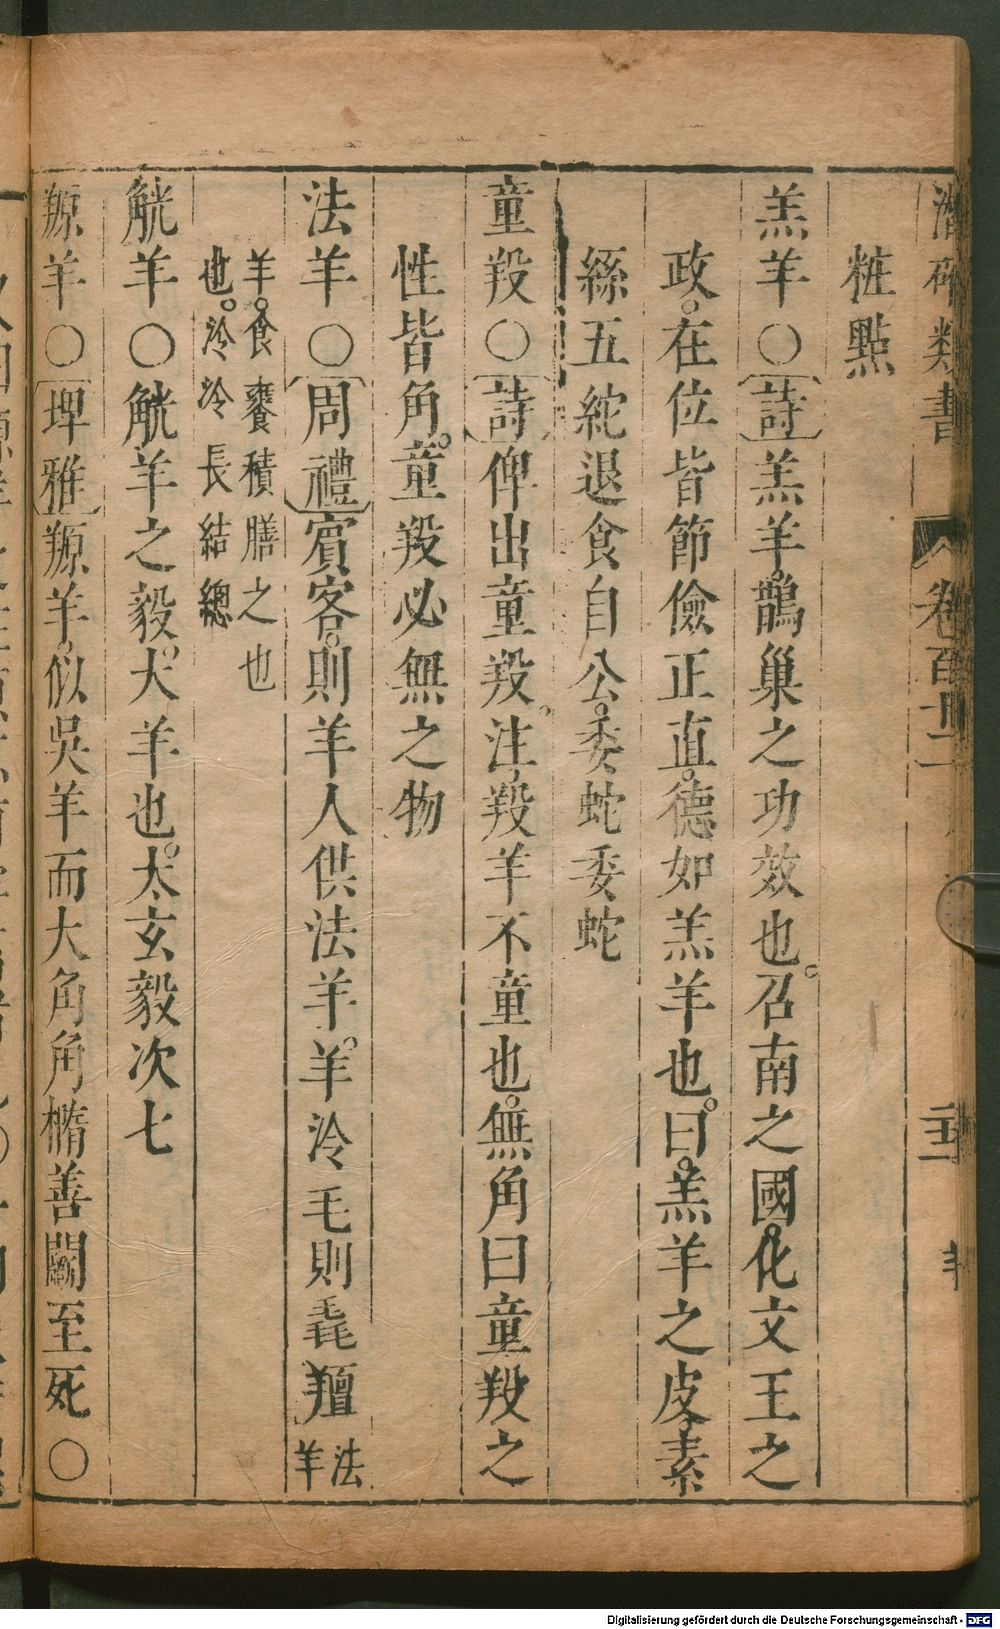 潛確類書 卷百十一 羊
粧點
羔羊○詩羔羊。鵲巢之功效也。召南之國。化文王之
政。在位皆節儉正直。德如羔羊也。曰。羔羊之皮。素
絲五紽退食自公。委蛇委蛇
童羖○詩俾出童羖。注。羖羊不童也。無角曰童羖之
性皆角。童羖必無之物
法羊○周禮賓客。則羊人供法羊。羊泠毛則毳羶法羊
羊。食饔積膳之也
也。泠泠長結總
觥羊○觥羊之毅。大羊也。太玄毅次七
羱羊○埤雅羱羊。似吳羊而大角角橢善鬭至死○
Digitalisierung gefördert durch die Deutsche Forschungsgemeinschaft - DFG